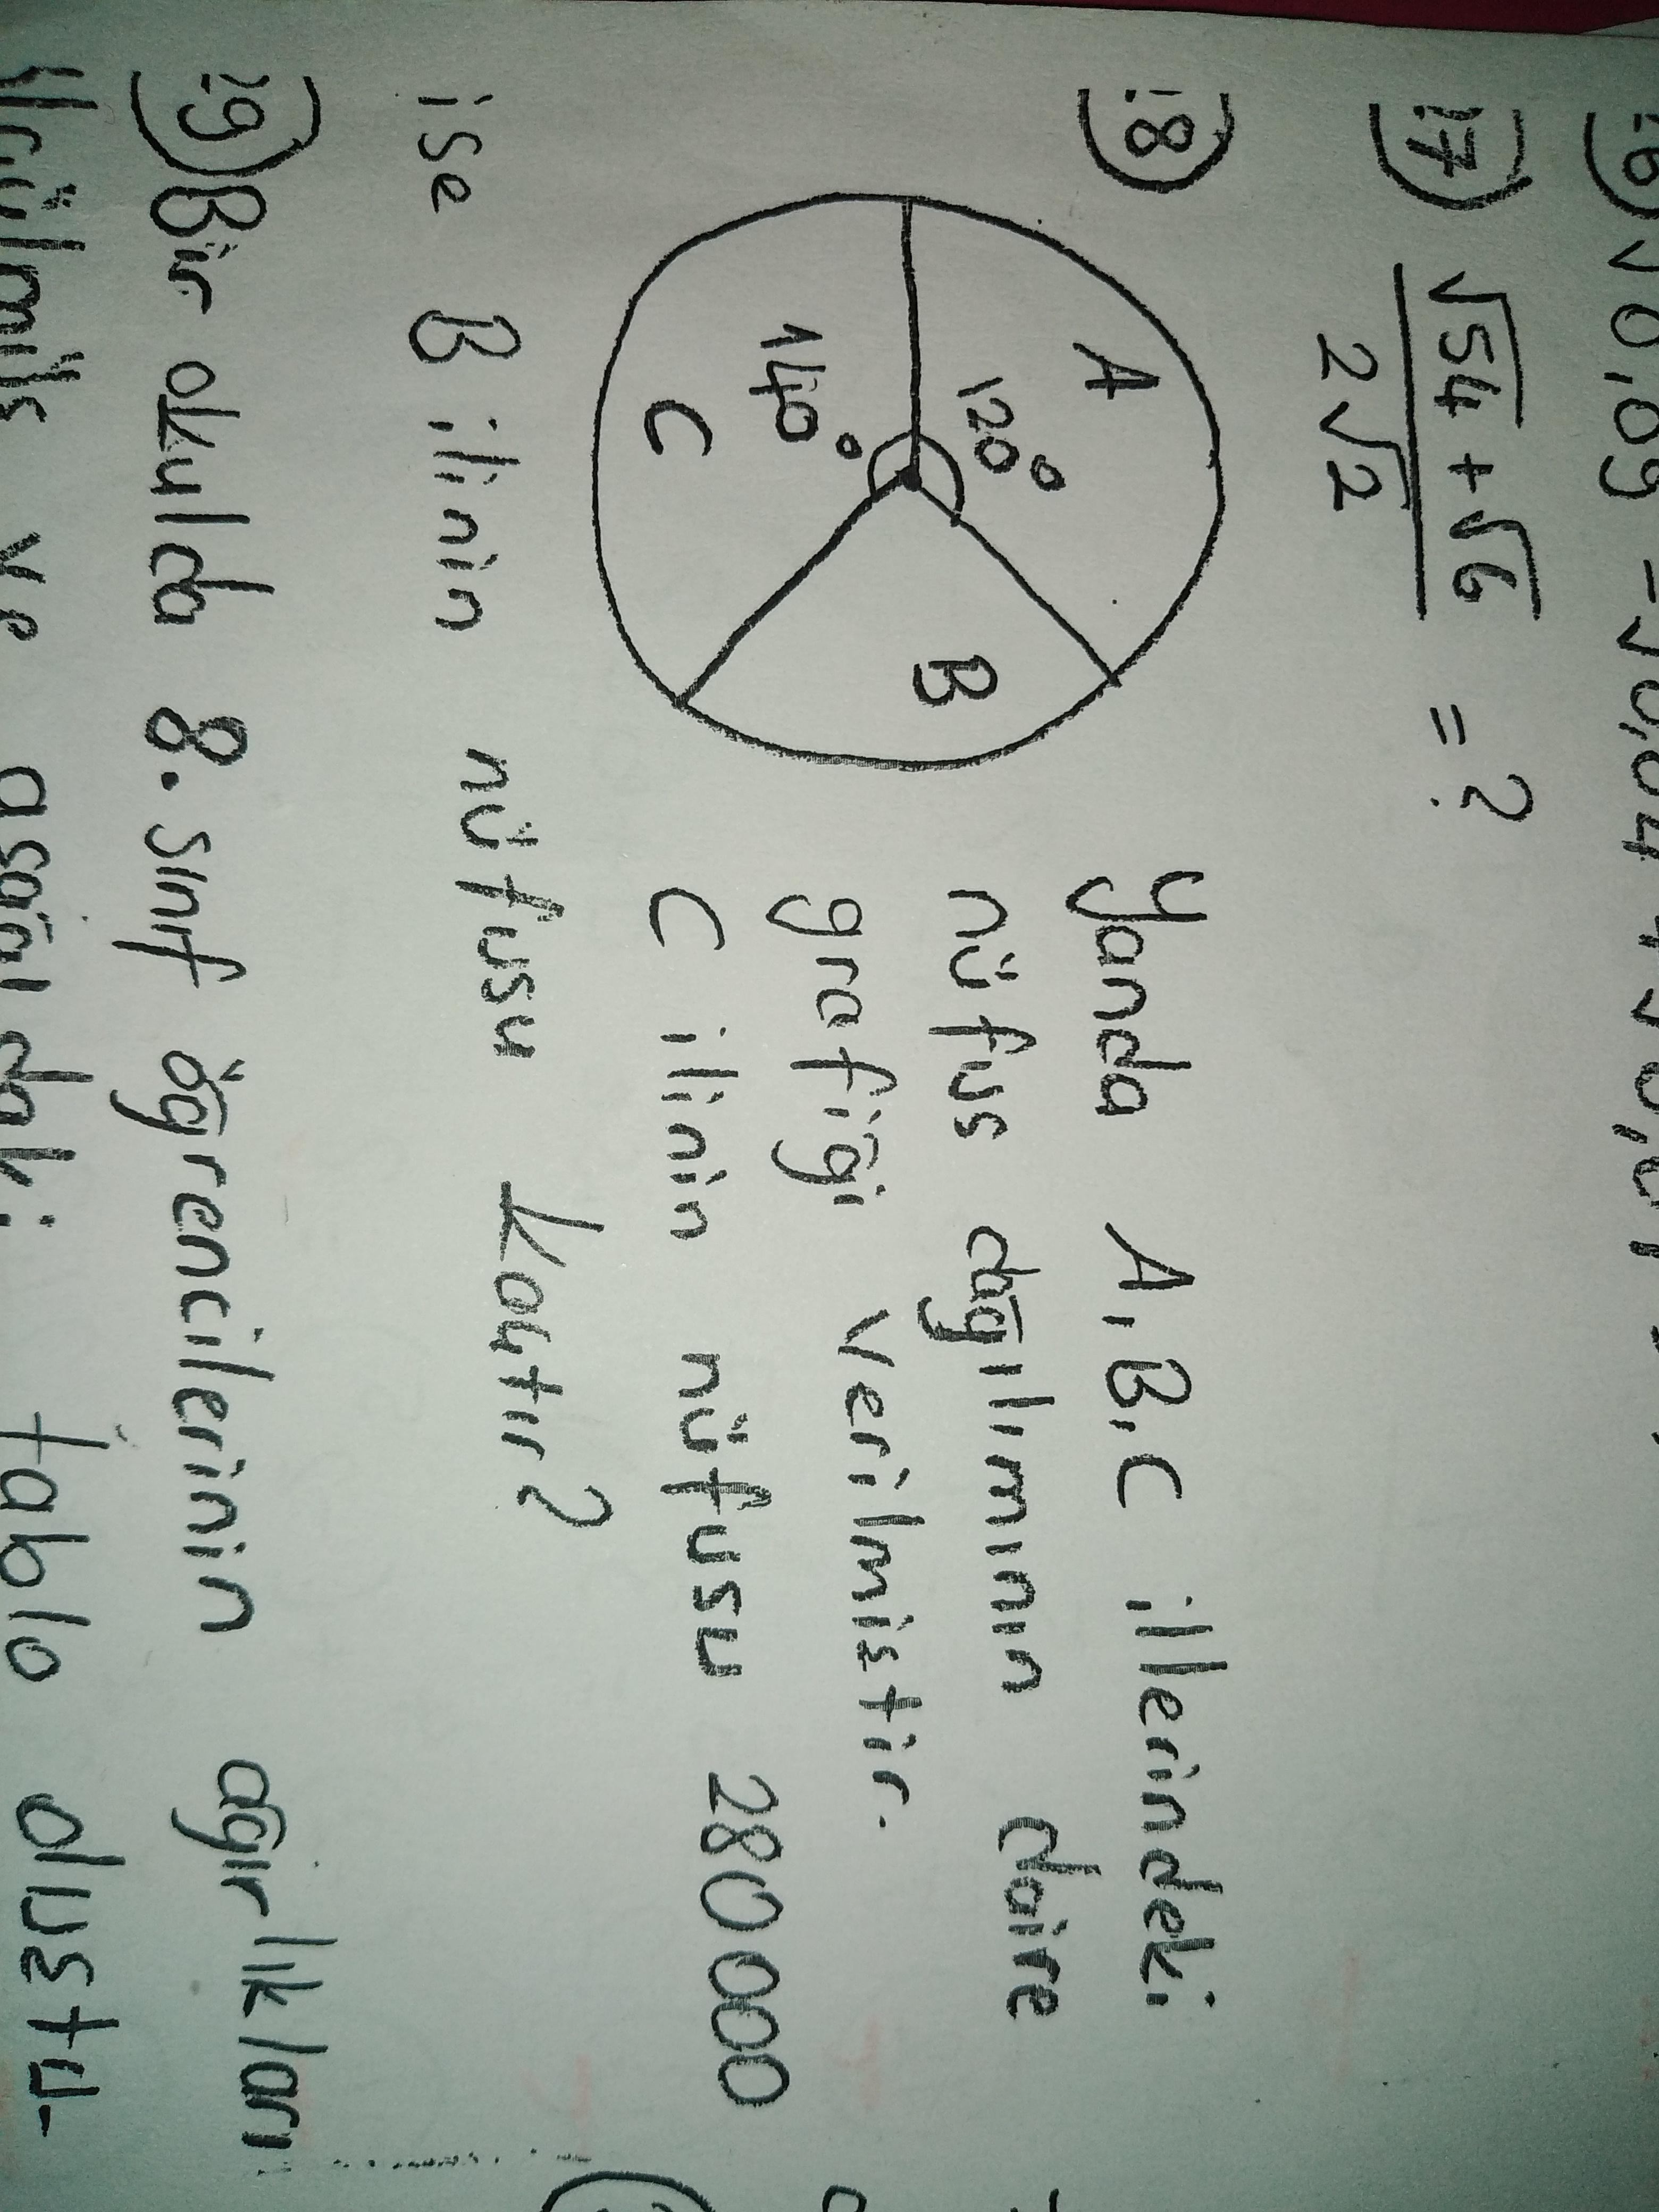 √0,09 - √0,04 + √0,01
:7) √54 + √6 = ?
2√2
:8)
A
120°
140°
C
B
Yanda A,B,C illerindeki
nüfus dağılımının daire
grafiği verilmiştir.
C ilinin nüfusu 280 000
ise B ilinin nüfusu kaçtır?
:9) Bir okulda 8. sınıf öğrencilerinin ağırlıkları
ve aşağıdaki tablo oluştu-